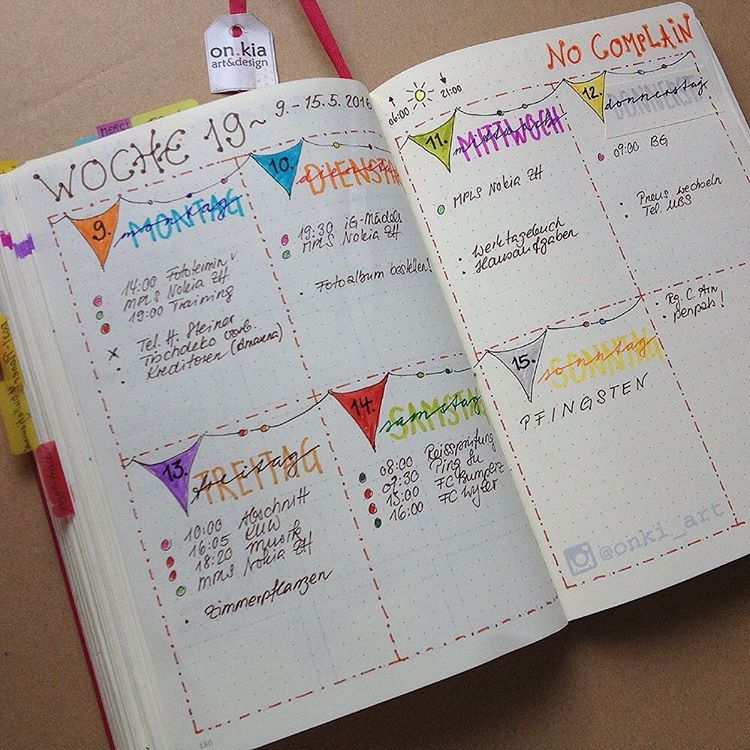 on.kia
art&design
WOCHE 19~ 9. - 15.5.2016
9. MONTAG
montag
14:00 Fototermin
MPLS Nokia ZH
19:00 Training
Tel. H. Steiner
Tischdeko vorb.
Kreditoren
10. DIENSTAG
dienstag
19:30 iG-Mädels
MPLS Nokia ZH
Fotoalbum bestellen!
13. FREITAG
freitag
10:00 Abschnitt
16:05 KUW
18:20 Musik
MPLS Nokia ZH
Zimmerpflanzen
14. SAMSTAG
samstag
08:00 Reissprüfung
09:30 Ping
15:00 FC Bümpliz
16:00 FC Wyler
NO COMPLAIN
06:00 21:00
11. MITTWOCH
mittwoch
MPLS Nokia ZH
Werktagebuch
Hausaufgaben
12. DONNERSTAG
donnerstag
09:00 BG
Pneus wechseln
Tel. UBS
15. SONNTAG
sonntag
PFINGSTEN
@onki_art
180